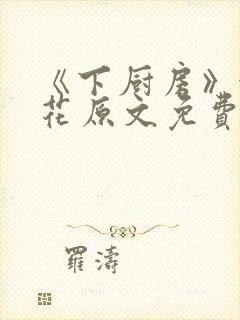 《下厨房》
花原文免費
羅濤